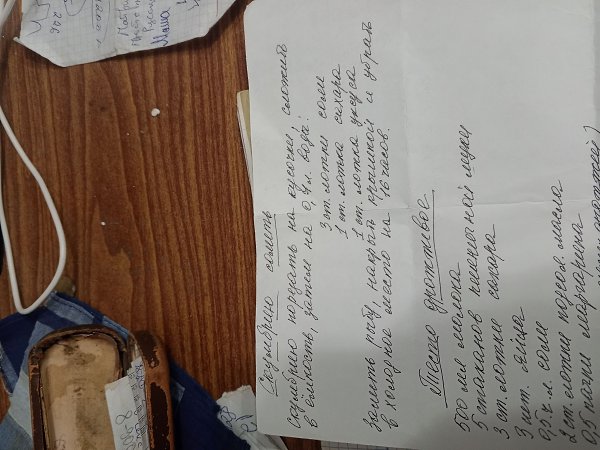 Скумбрию солить
Скумбрию порезать на кусочки, сложить
в ёмкость, залить на 0,7 л. воды:
3 ст. ложки соли
1 ст. ложка сахара
1 ст. ложка уксуса
Залить рыбу, накрыть крышкой и убрать
в холодное место на 16 часов.
Тесто дрожжевое
500 мл молока
5 стаканов пшеничной муки
3 ст. ложки сахара
3 шт. яйца
0,5 ч. л. соли
2 ст. ложки подсол. масла
0,5 пачки маргарина
дрожжей)
Маша